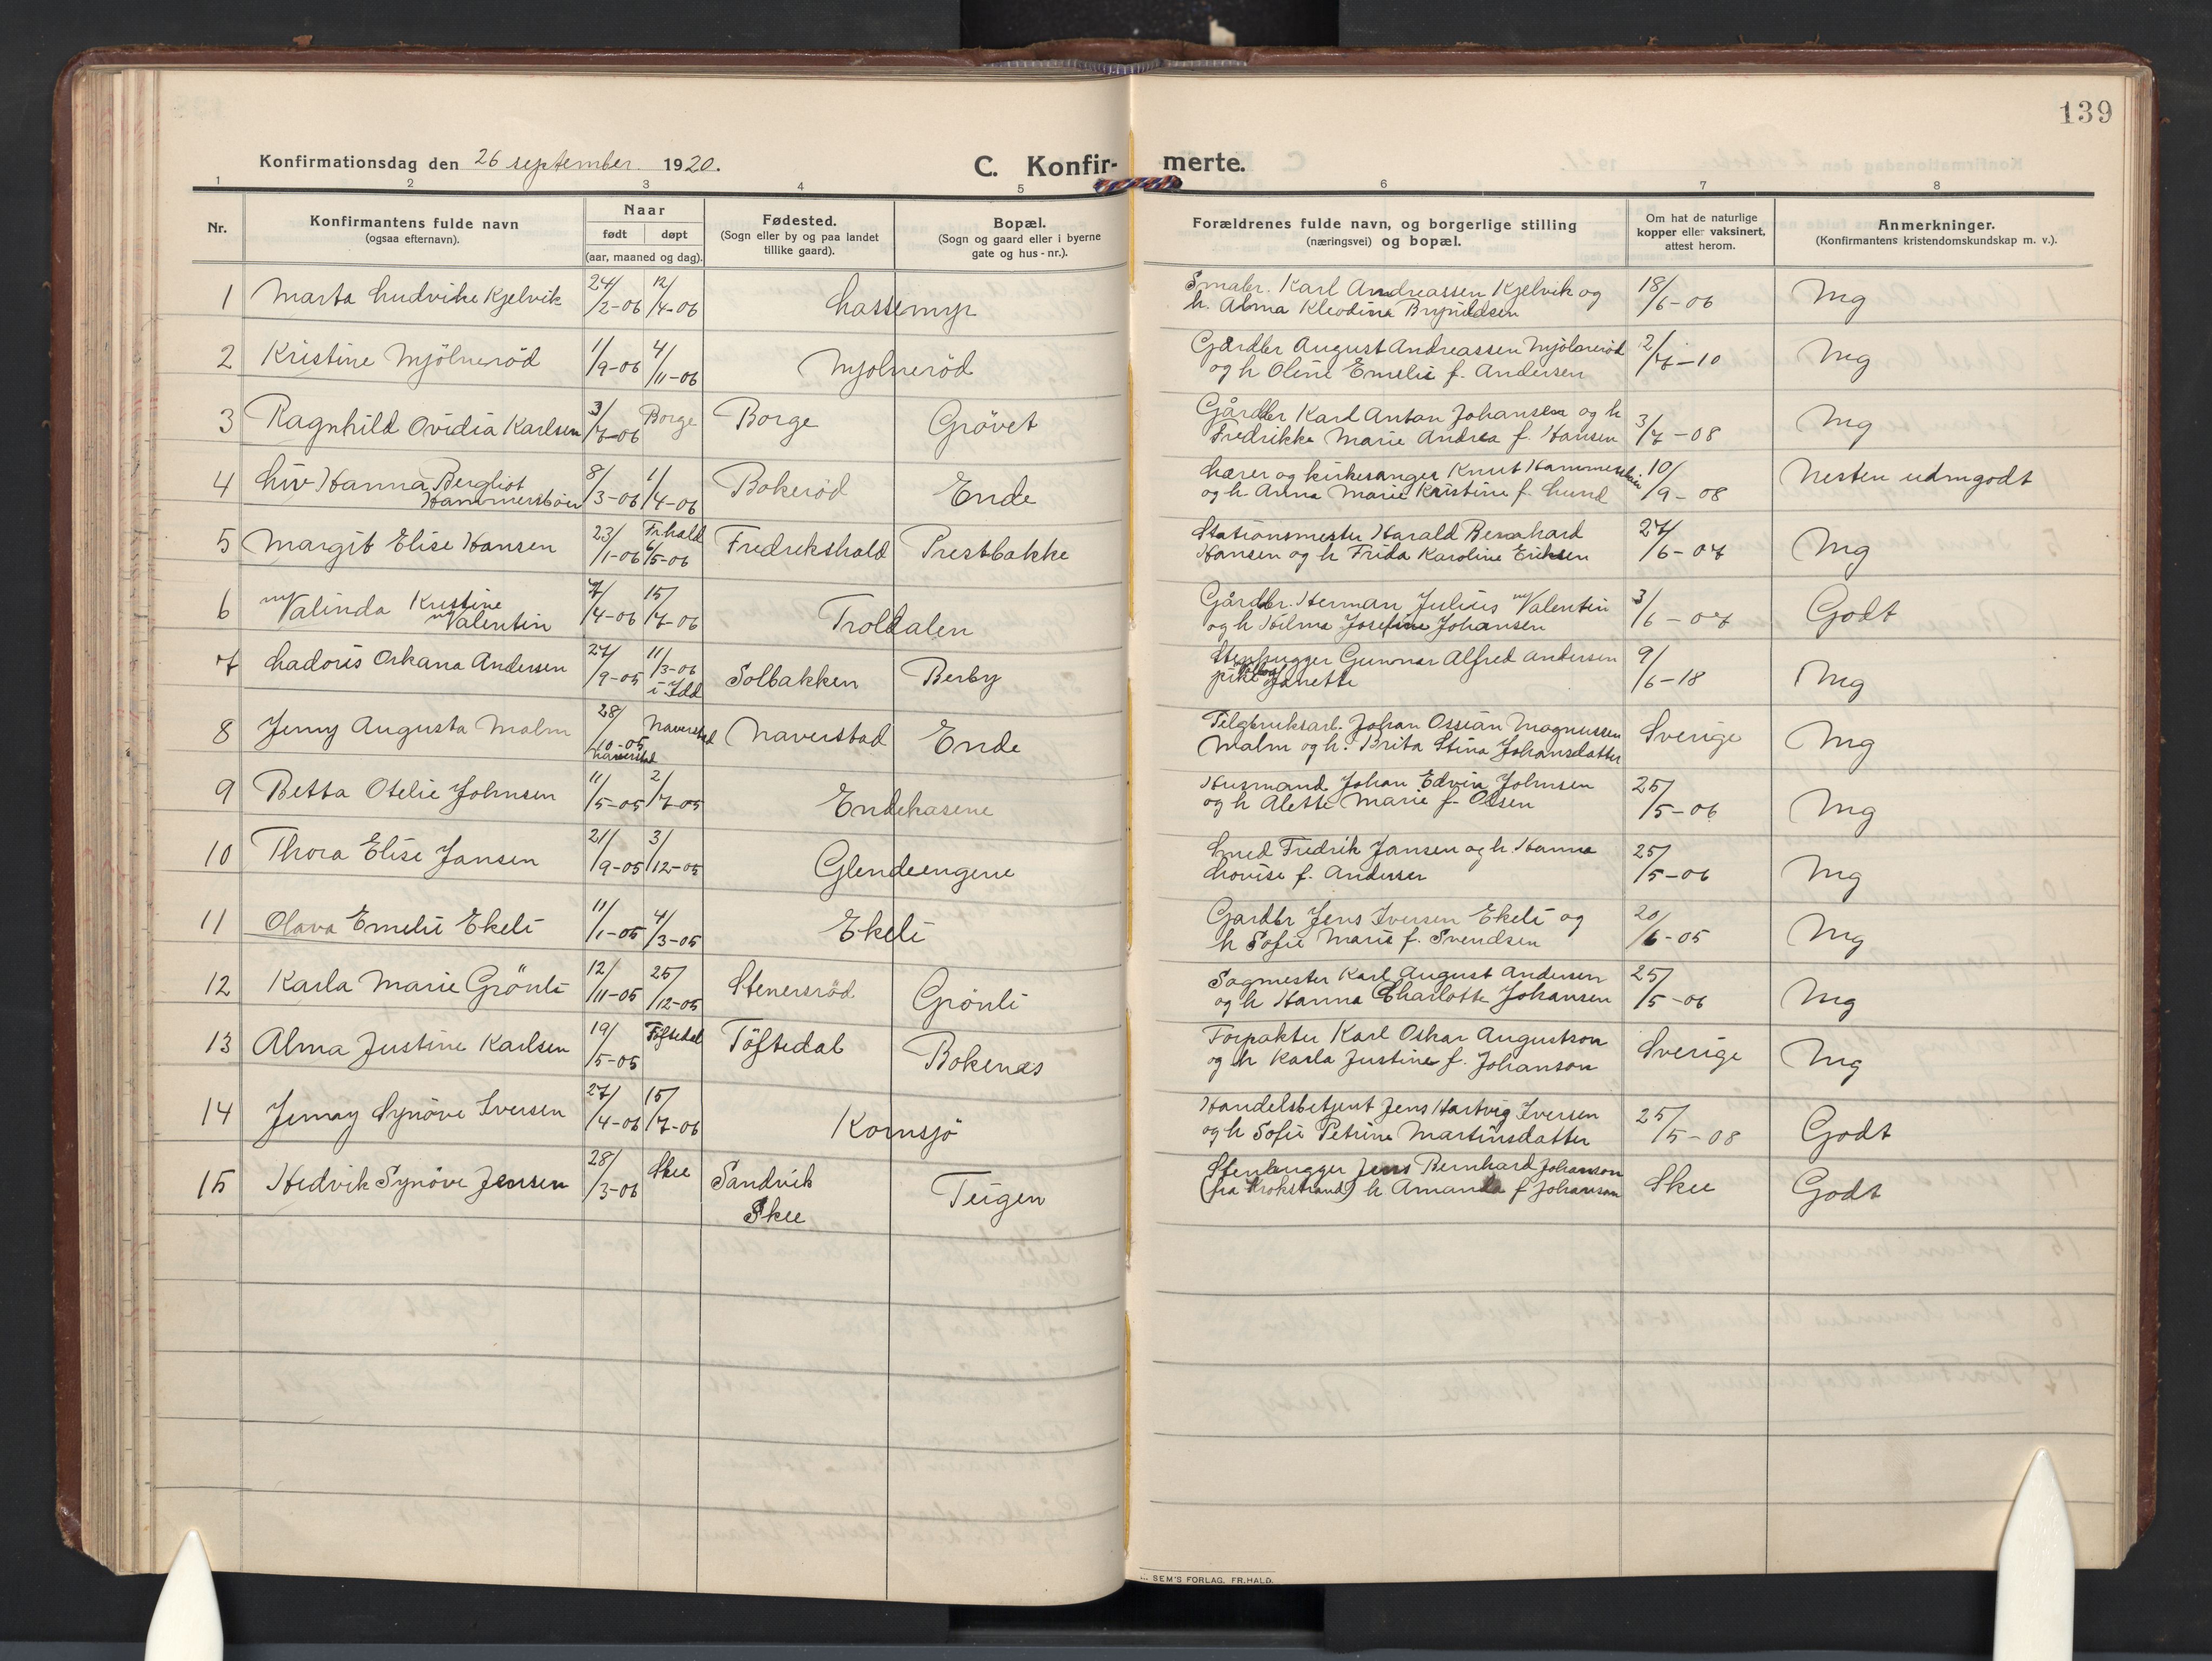 139
Konfirmationsdag den 26 september. 1920. C. Konfir- merte.
1 2 3 4 5 6 7 8
Nr. Konfirmantens fulde navn (ogsaa efternavn). Naar født døpt (aar, maaned og dag). Fødested. (Sogn eller by og paa landet tillike gaard). Bopæl. (Sogn og gaard eller i byerne gate og hus-nr.). Forældrenes fulde navn, og borgerlige stilling (næringsvei) og bopæl. Om hat de naturlige kopper eller vaksinert, attest herom. Anmerkninger. (Konfirmantens kristendomskundskap m. v.).
1 Marta Ludvike Kjelvik 24/2-06 12/4-06 Lassemyr Smabr. Karl Andreassen Kjelvik og
h. Alma Kleodina Brynildsen 18/6-06 Mg
2 Kristine Mjölneröd 11/9-06 4/11-06 Mjolneröd Gardbr August Andreassen Mjölneröd
og h Oline Emelie f. Andersen 2/7-10 Mg
3 Ragnhild Ovidia Karlsen 3/7-06 Borge Borge Grövet Gårdbr Karl Anton Johansen og h
Fredrikke Marie Andrea f. Hansen 3/7-08 Mg
4 Liv Hanna Bergliot
Hammersböen 8/3-06 1/4-06 Bokeröd Ende Lærer og kirkesanger Knut Hammersböen
og h. Anna Marie Kristine f. Lund 10/9-08 Nesten udmgodt
5 Margit Elise Hansen 23/1-06 Fr.hald 6/5-06 Fredrikshald Prestbakke Stationsmester Harald Bernhard
Hansen og h Frida Karoline Eriksen 27/6-07 Mg
6 Valinda Kristine
Valentin 7/4-06 15/7-06 Troldalen Gårdbr. Herman Julius Valentin
og h Hilma Josefine Johansen 3/6-07 Godt
7 Ladoris Oskana Andersen 27/9-05 11/3-06 i Idd Solbakken Berby Stenhugger Gunnar Alfred Andersen
pike Janette 9/6-18 Mg
8 Jenny Augusta Malm 28/10-05 Naverstad Naverstad Naverstad Ende Tilgbruksarb. Johan Ossian Magnussen
Malm og h. Brita Stina Johansdatter Sverige Mg
9 Betta Otelie Johnsen 11/5-05 2/7-05 Endekasene Husmand Johan Edvin Johnsen
og h Alette Marie f. Olsen 25/5-06 Mg
10 Thora Elise Jansen 21/9-05 3/12-05 Glendeengene Smed Fredrik Jansen og h. Hanna
Lovise f. Andersen 25/5-06 Mg
11 Olava Emelie Ekeli 11/1-05 4/3-05 Ekeli Gardbr Jens Iversen Ekeli og
h Sofie Marie f. Svendsen 20/6-05 Mg
12 Karla Marie Grönli 12/11-05 25/12-05 Stenersröd Grönli Sagmester Karl August Andersen
og h Hanna Charlotte Johansen 25/5-06 Mg
13 Alma Justine Karlsen 19/5-05 Töftedal Töftedal Bokenæs Forpakter Karl Oskar Augustson
og h Karla Justine f. Johanson Sverige Mg
14 Jenny Synöve Iversen 27/4-06 15/7-06 Kornsjö Handelsbetjent Jens Hartvig Iversen
og h Sofie Petrine Martinsdatter 25/5-08 Godt
15 Hedvik Synöve Jensen 28/3-06 Skee Sandvik
Skee Teigen Stenhugger Jens Bernhard Johanson
(fra Krokstrand) h Amanda f Johanson Skee Godt
SEM'S FORLAG, FR.HALD.